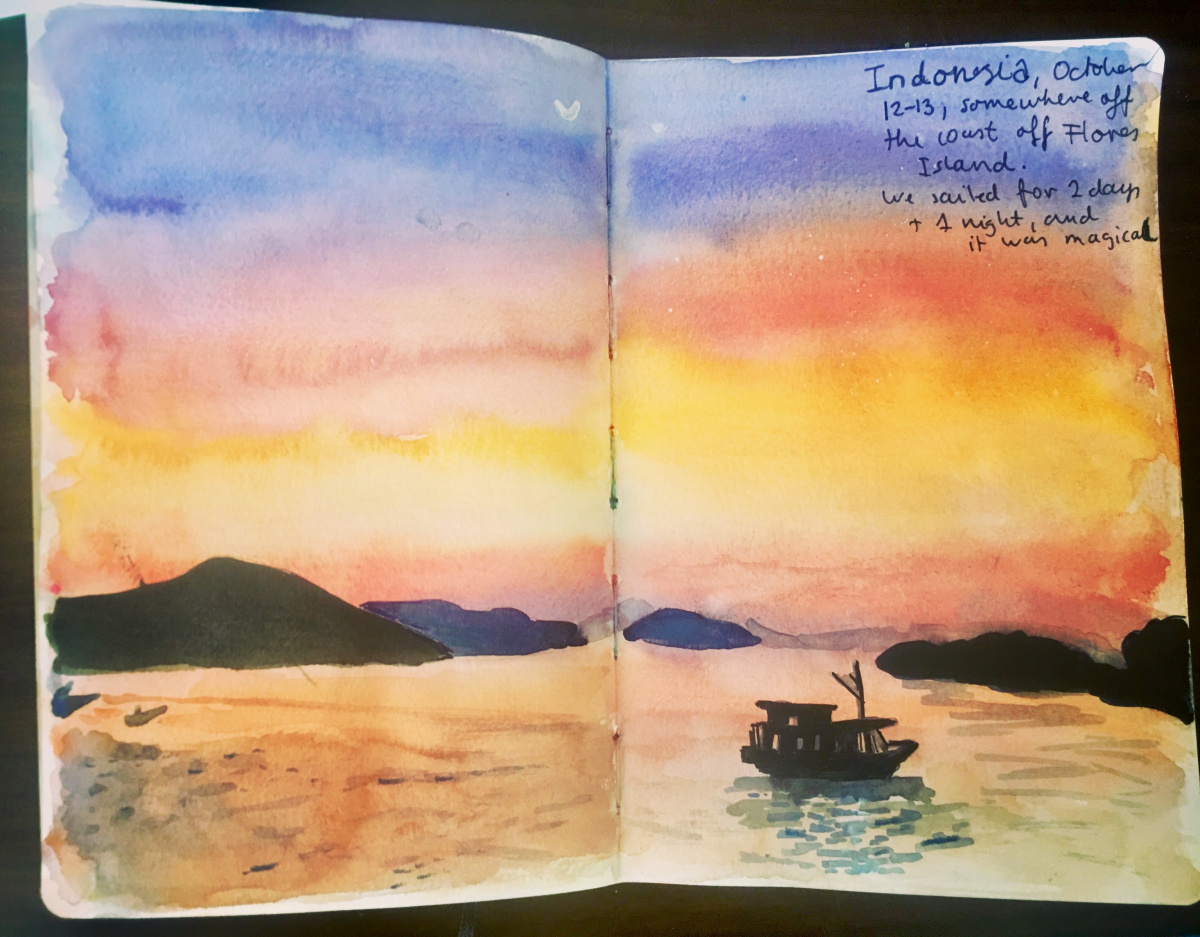 Indonesia, October
12-13, somewhere off
the coast off Flores
Island.
We sailed for 2 days
+ 1 night, and
it was magical